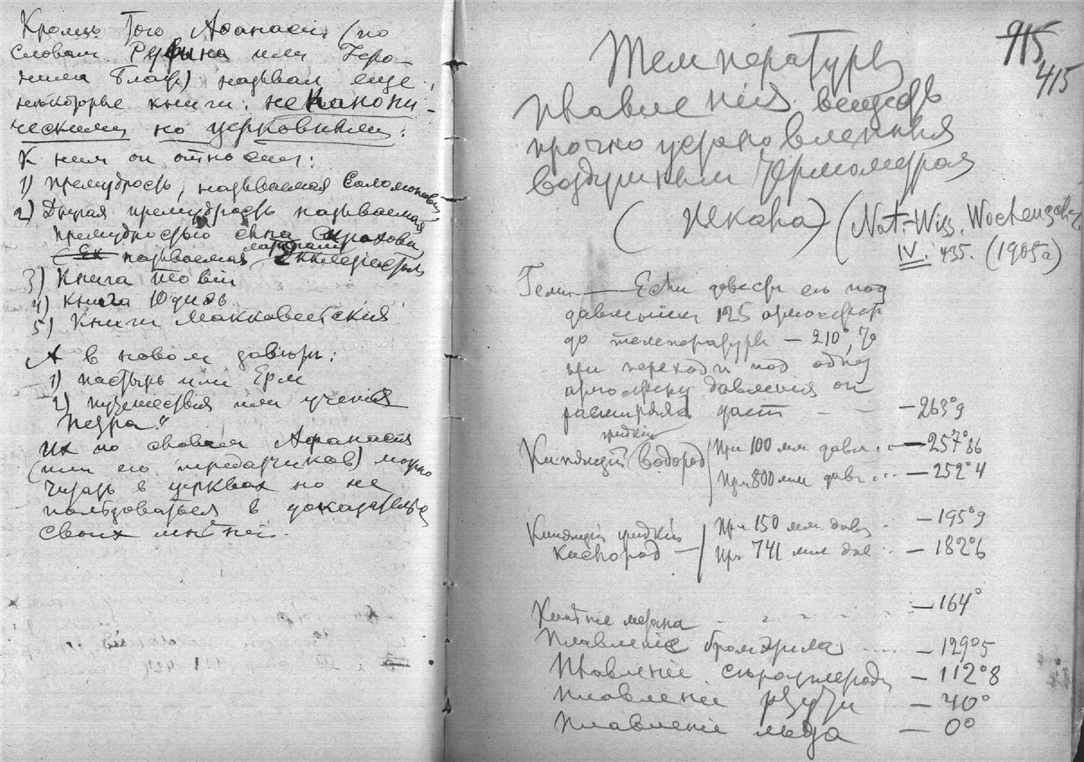 Кромѣ того Аѳанасій (по
словам Руфина или Іеро-
нима Блаж) называл еще
некоторые книги. не канони-
ческими но церковными:
К ним он относит:
1) Премудрость, называемая Соломоновой
2) Другая премудрость называемая
премудростью сына Сирахова
называемая латинами Екклесіастик
3) Книга Товіи
4) Книга Юдиѳь
5) Книги Маккавейскія
А в новом завѣтѣ:
1) пастырь или Ерм
2) путешествія или ученія
Петра."
Их по словам Аѳанасія
(или его передатчиков) можно
читать в церквах но не
пользоваться в доказательство
своих мнѣній.
915
415
Температуры
плавленія веществ
прочно установленныя
воздушным термометром
(Nat-Wiss. Wochenschr
IV. 435. (1905г)
Гелій — Если довести его под
давленіем 125 атмосфер
до температуры — 210°,70
при переходѣ под одну
атмосферу давленія он
расширяясь даст - - —263°9
жидкій
Кипящій (водород При 100 мм давл. .. —257°86
При 800 мм давл ... —252°4
Кипящій жидкій При 150 мм. давл . —195°9
кислород — при 741 мм дав .. —182°6
Кипѣніе метана - - - - —164°
Плавленіе бромэтила .... —129°5
Плавленіе сѣроуглерода —112°8
Плавленіе ртути —40°
Плавленіе льда — 0°